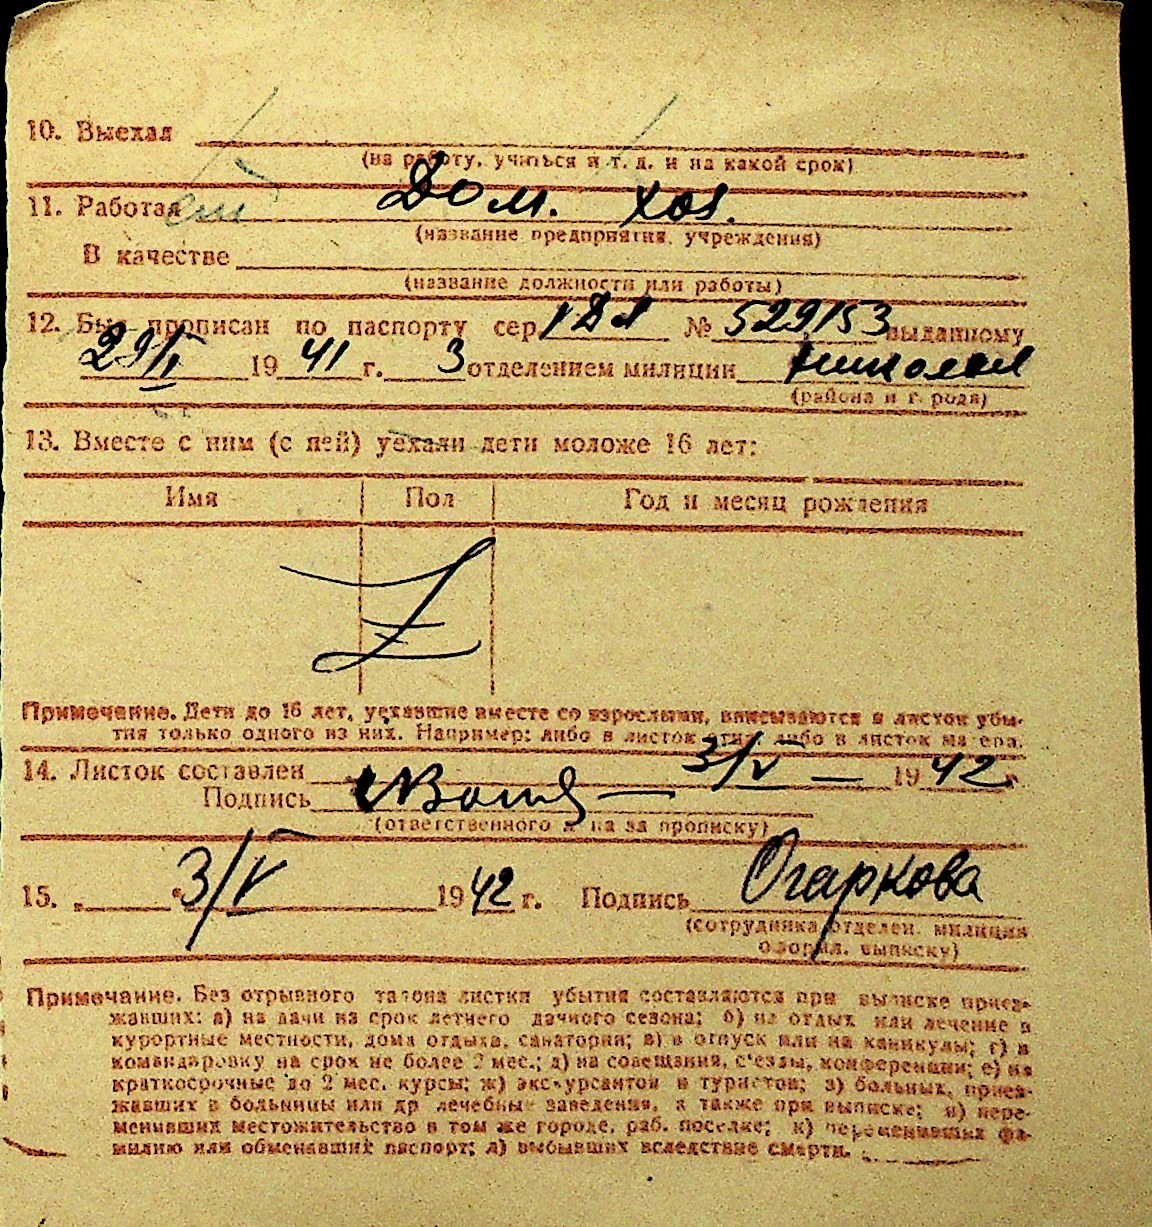 10. Выехал
(на работу, учиться и т. д. и на какой срок)
11. Работал Дом. хоз.
(название предприятия, учреждения)
В качестве
(название должности или работы)
12. Был прописан по паспорту сер. № 529153 выданному
29/V 1941 г. 3 отделением милиции
(района и города)
13. Вместе с ним (с ней) уехали дети моложе 16 лет:
Имя Пол Год и месяц рождения
Z
Примечание. Дети до 16 лет, уехавшие вместе со взрослыми, вписываются в листок убы-
тия только одного из них. Например: либо в листок отца, либо в листок матери.
14. Листок составлен 3/V — 1942 г.
Подпись
(ответственного лица за прописку)
15. „ “ 3/V 1942 г. Подпись Огаркова
(сотрудника отделен. милиции
оформ. выписку)
Примечание. Без отрывного талона листки убытия составляются при выписке приез-
жавших: а) на дачи на срок летнего дачного сезона; б) на отдых или лечение в
курортные местности, дома отдыха, санатории; в) в отпуск или на каникулы; г) в
командировку на срок не более 2 мес.; д) на совещания, съезды, конференции; е) на
краткосрочные до 2 мес. курсы; ж) экскурсантов и туристов; з) больных, приез-
жавших в больницы или др. лечебные заведения, а также при выписке; и) пере-
менивших местожительство в том же городе, раб. поселке; к) переменивших фа-
милию или обменявших паспорт; л) выбывших вследствие смерти.